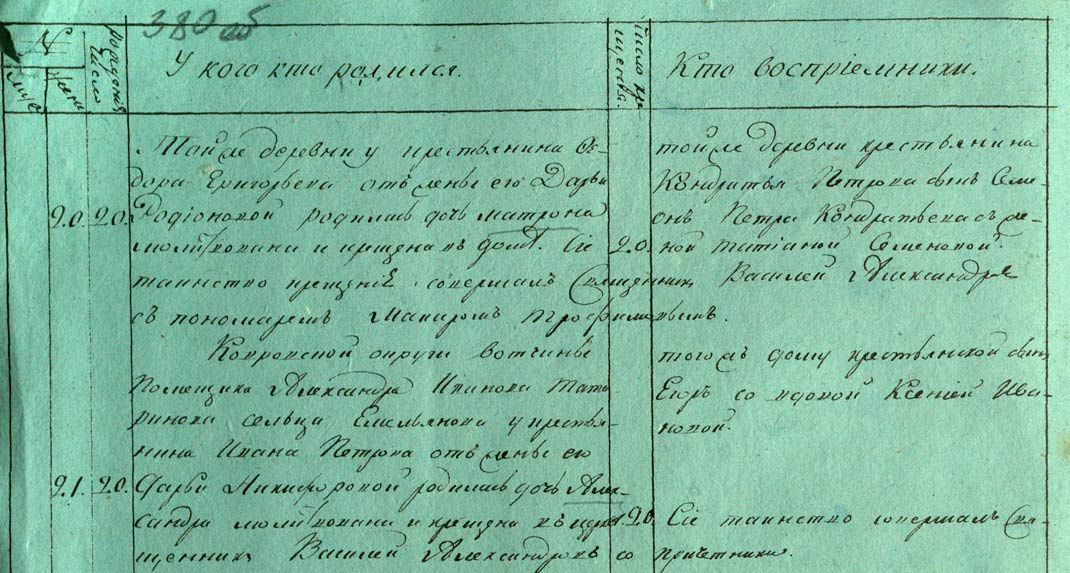 380 об
№
муж
жен
рожденія число
У кого кто родился.
число крещенія.
Кто воспріемники.
Той же деревни у крестьянина Ѳе-
дора Григорьева отъ жены его Дарьи
20. 20. Родіоновой родилась дочь Матрона
молитвована и крещена въ дому. Сіе
таинство крещеніе совершалъ Священникъ Василей Александровъ
съ пономаремъ Макаромъ Трофимовымъ.
20.
той же деревни крестьянина
Кондратья Петрова сынъ Семе-
онъ Петра Кондратьева съ же-
ной Татіаной Семеновой.
Ковровской округи вотчины
Помещика Александра Иванова Тата
ринова сельца Емельянова у крестья-
нина Ивана Петрова отъ жены его
21. 20. Дарьи Никифоровой родилась дочь Алек-
сандра молитвована и крещена въ церкви
20.
того жъ дому крестьянской сынъ
Егоръ со вдовой Ксеніей Ива-
новой.
Сіе таинство совершалъ Свя-
щенникъ Василей Александровъ со причетники.